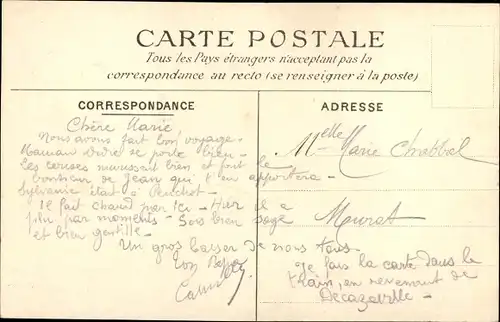 CARTE POSTALE
Tous les Pays étrangers n'acceptent pas la
correspondance au recto (se renseigner à la poste)
CORRESPONDANCE
Chère Marie,
Nous avons fait bon voyage.
Maman Didre se porte bien -
Les cerises murissent bien et font le
bonheur de Jean qui t'en apportera -
Sylvanie était à Penchot -
Il fait chaud par ici - Hier il a
plu par moments - Sois bien sage
et bien gentille -
Un gros baiser de nous tous
Ton Papa
ADRESSE
Melle Marie Chabbal
Murat
Je fais la carte dans le
train, en revenant de
Decazeville -